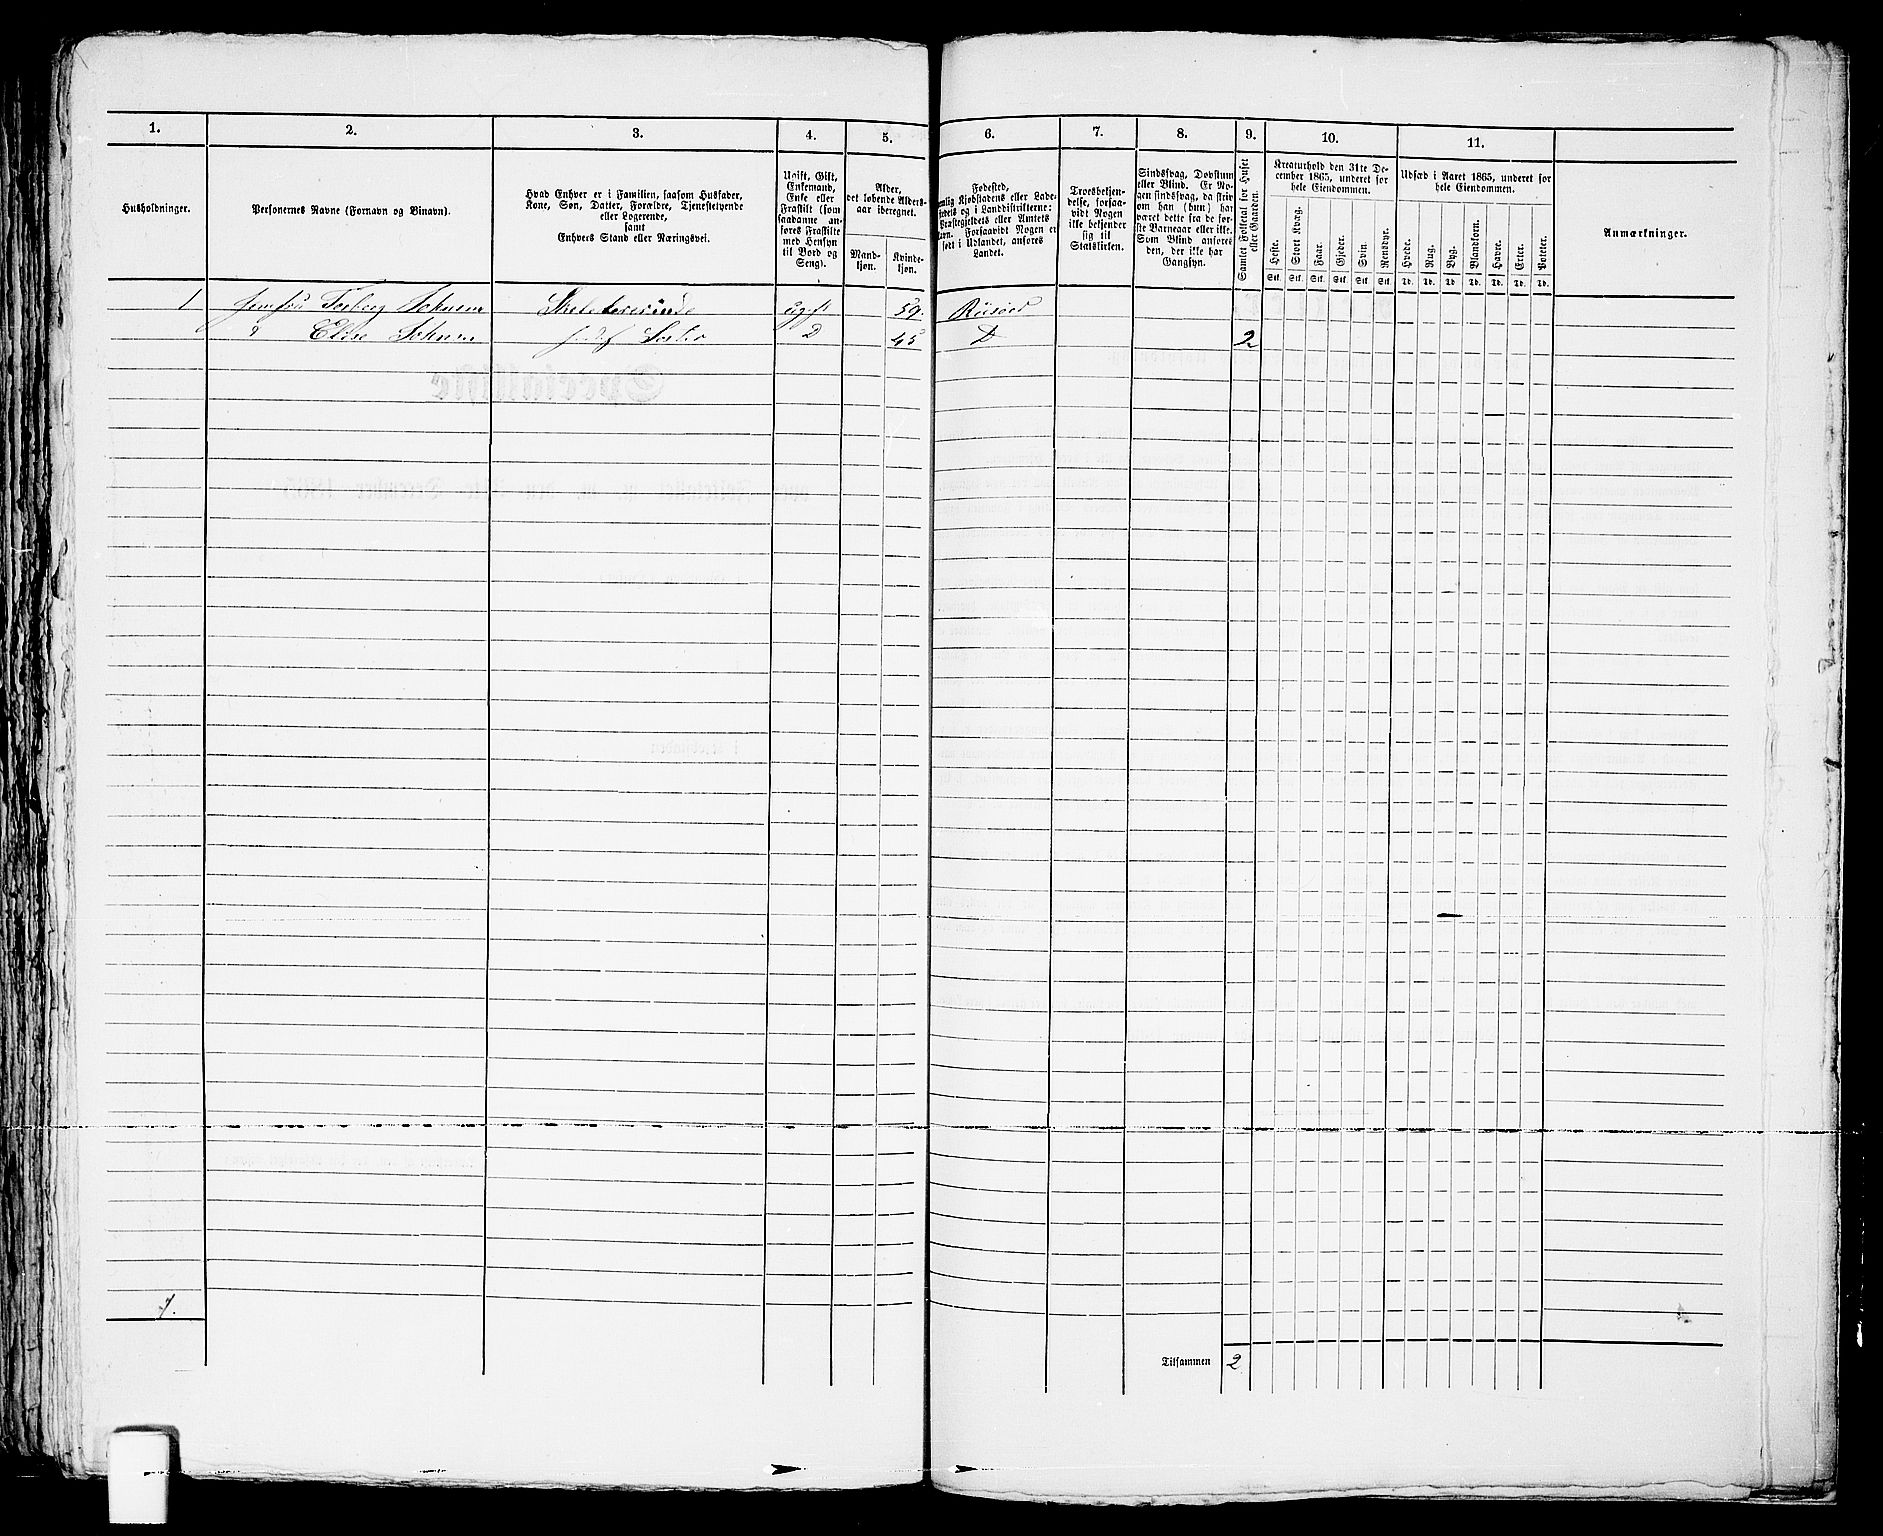 1. 2. 3. 4. 5. 6. 7. 8. 9. 10. 11.
Husholdninger.
Personernes Navne (Fornavn og Binavn).
Hvad Enhver er i Familien, saasom Husfader,
Kone, Søn, Datter, Forældre, Tjenestetyende
eller Logerende,
samt
Enhvers Stand eller Næringsvei.
Ugift, Gift,
Enkemand,
Enke eller
Fraskilt (som
saadanne an-
føres Fraskilte
med Hensyn
til Bord og
Seng).
Alder,
det løbende Alders-
aar iberegnet.
Mand-
kjøn.
Kvinde-
kjøn.
Fødested,
Kjøbstadens eller Lade-
stedets og i Landdistrikterne:
Præstegjeldets eller Amtets
Navn. Forsaavidt Nogen er
født i Udlandet, anføres
Landet.
Troesbekjen-
delse, forsaa-
vidt Nogen
ikke bekjender
sig til
Statskirken.
Sindssvag, Døvstum
eller Blind. Er No-
gen sindssvag, da skriv
om han (hun) har
været dette fra de før-
ste Barneaar eller ikke.
Som Blind anføres
den, der ikke har
Gangsyn.
Samlet Folketal for Huset
eller Gaarden.
Kreaturhold den 31te De-
cember 1865, underet for
hele Eiendommen.
Heste. Stort Kvæg. Faar. Gjeder. Svin. Rensdyr.
Stk. Stk. Stk. Stk. Stk. Stk.
Udsæd i Aaret 1865, underet for
hele Eiendommen.
Hvede. Rug. Byg. Blandkorn. Havre. Erter. Poteter.
Td. Td. Td Td. Td. Td. Td.
Anmærkninger.
1 Jomfru Torborg ugift 59. Risøer
" Elise D 45 D 2
1.
Tilsammen 2